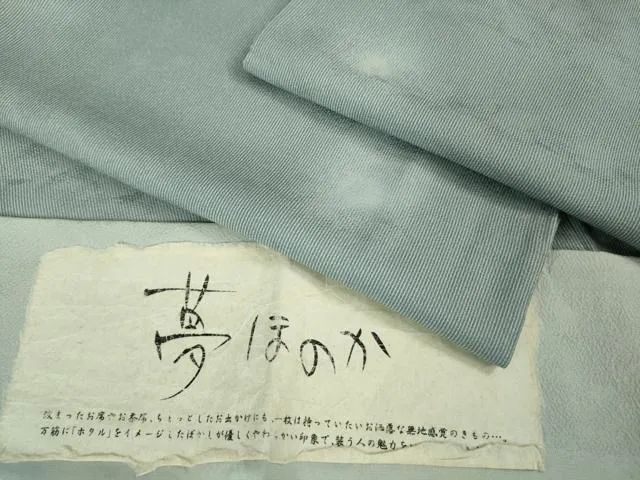 夢ほのか
改まったお席やお茶席、ちょっとしたお出かけにも、一枚は持っていたいお洒落な無地感覚のきもの…。
万筋に「ホタル」をイメージしたぼかしが優しくやわらかい印象で、装う人の魅力を